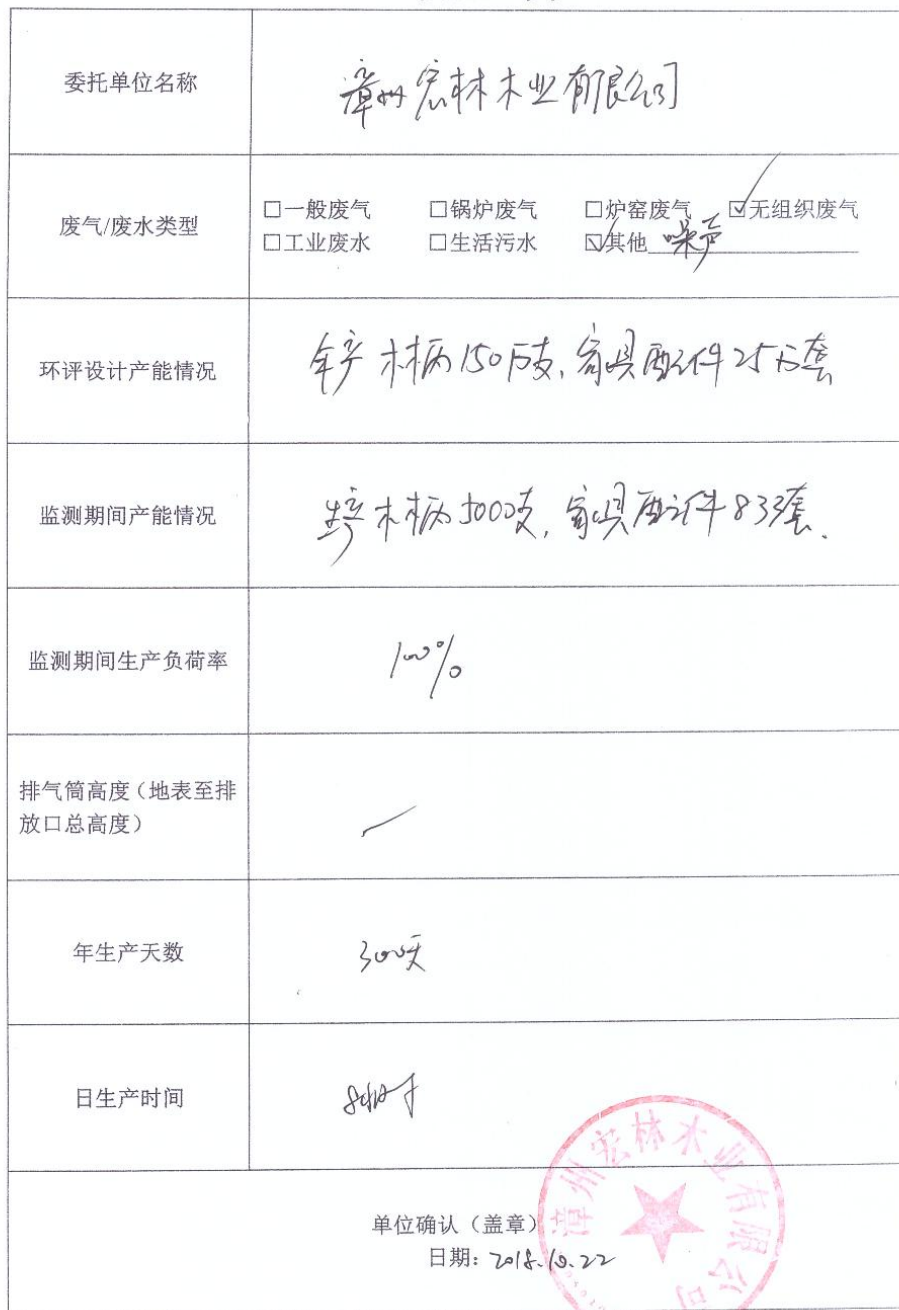 委托单位名称
漳州宏林木业有限公司
废气/废水类型
□一般废气 □锅炉废气 □炉窑废气 ☑无组织废气
□工业废水 □生活污水 ☑其他 噪声
环评设计产能情况
年产木柄150万支,家具配件25万套
监测期间产能情况
生产木柄5000支,家具配件833套.
监测期间生产负荷率
100%
排气筒高度(地表至排
放口总高度)
/
年生产天数
300天
日生产时间
8小时
单位确认(盖章)
日期: 2018.10.22
漳州宏林木业有限公司